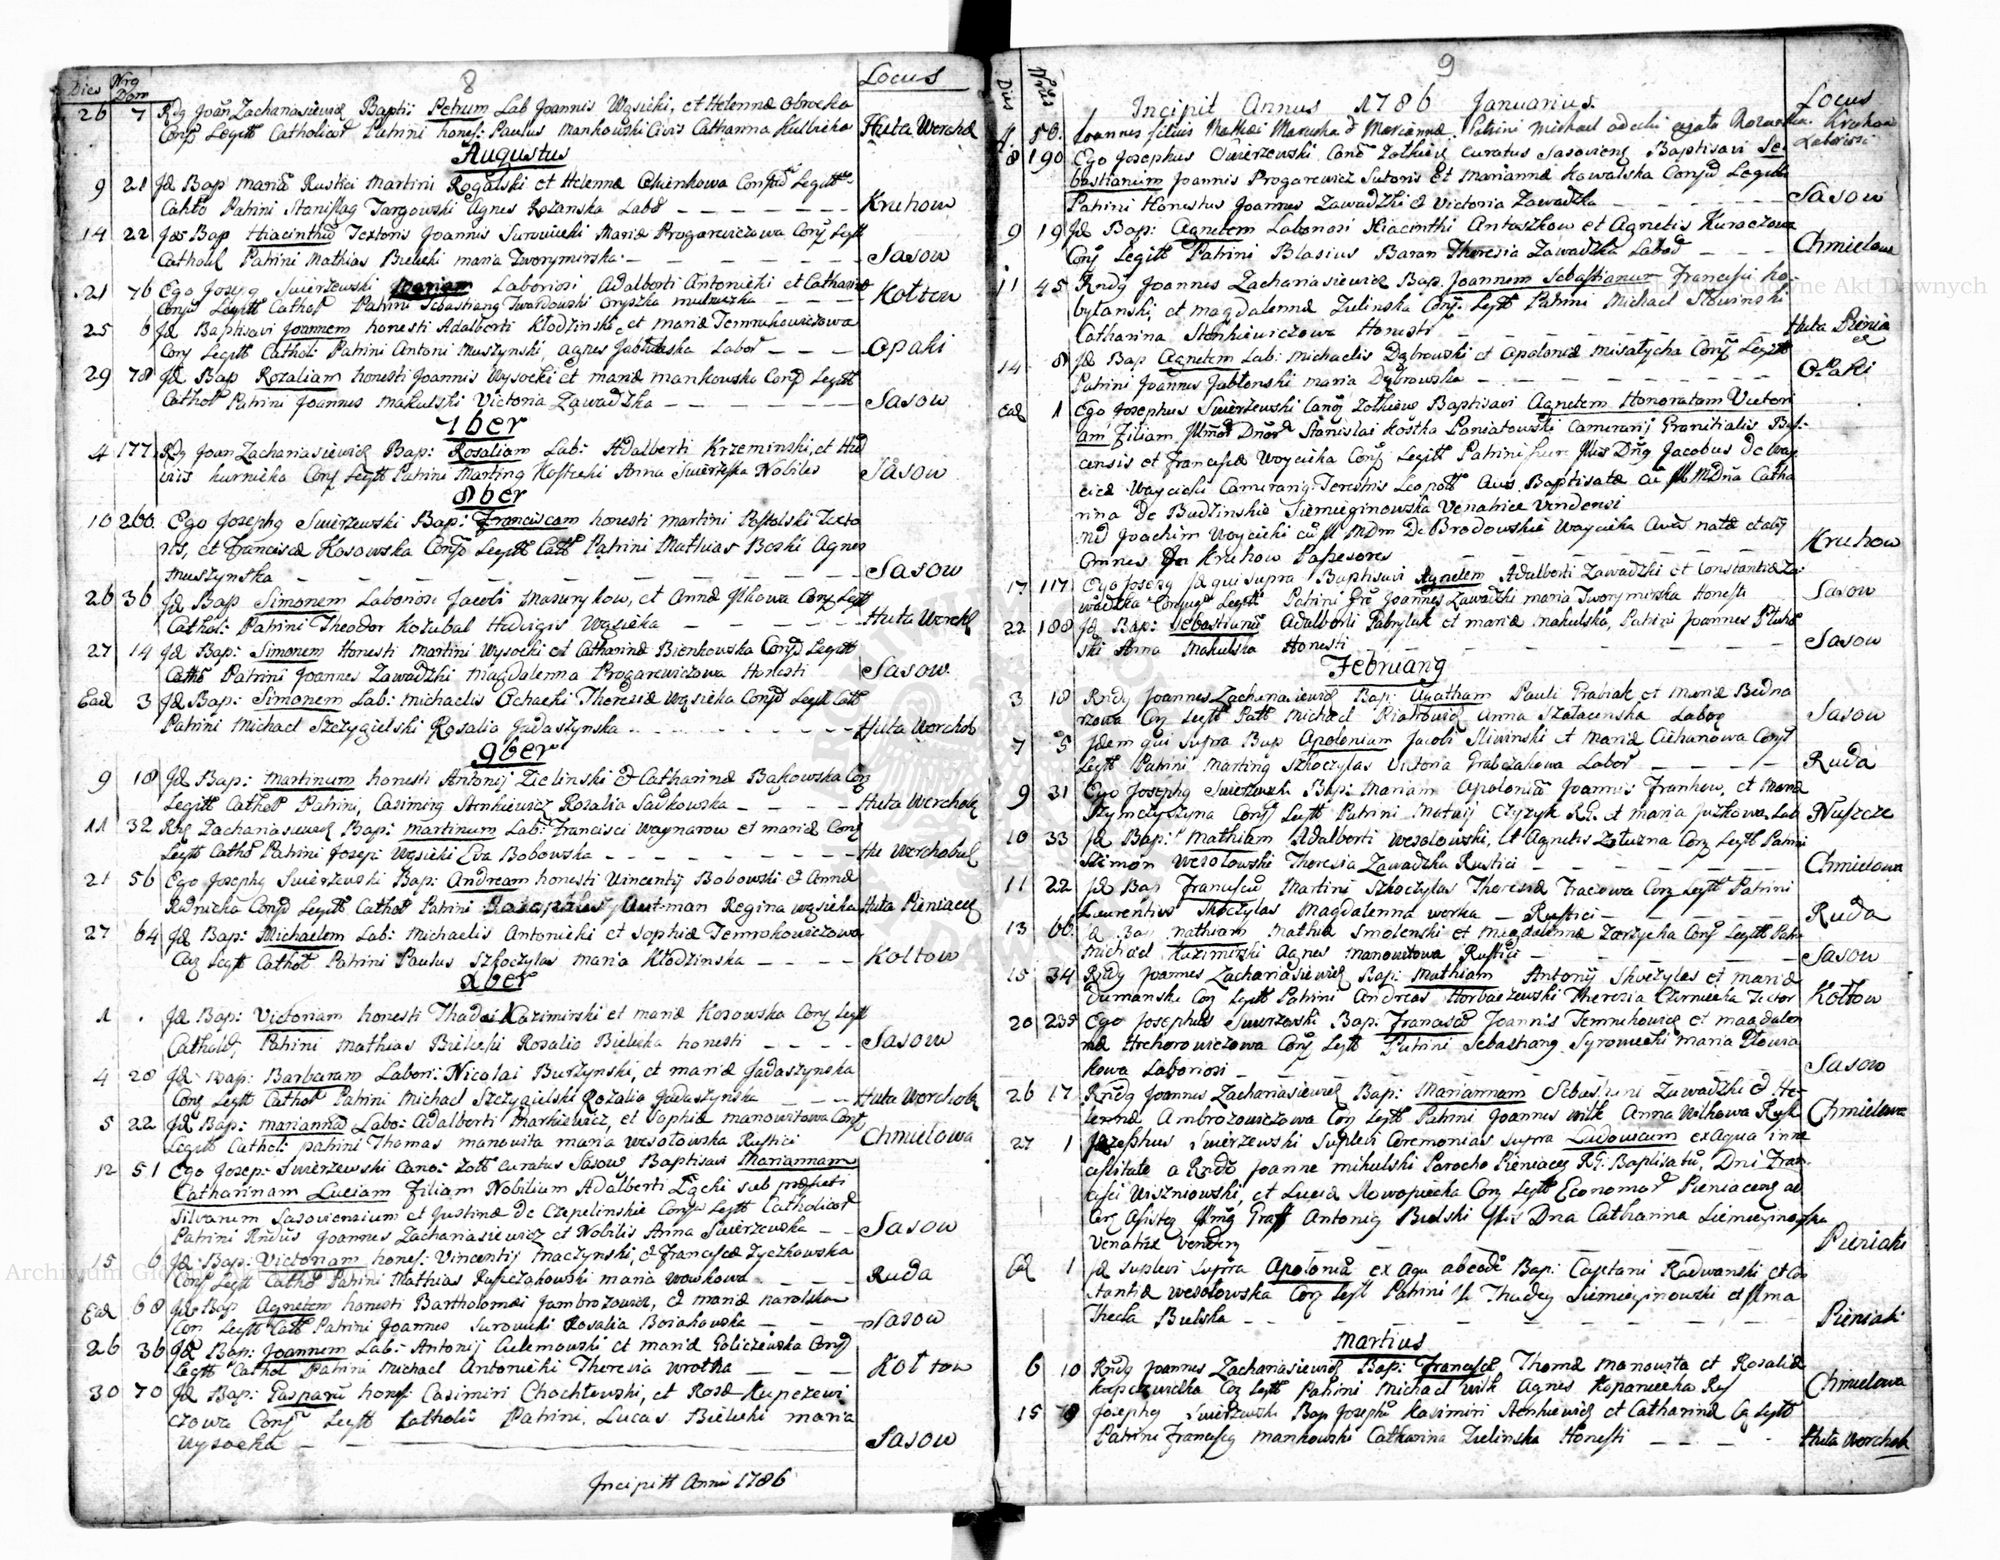 8
Dies Nrg Dom Locus
26 7 Rdg Joan Zachariasiewicz Bapti: Petrum Lab Joannis Wąsicki, et Helennæ Obrocka
Conj Legitt Catholicor Patrini hones: Paulus Mankowski Civis Catharina Kulbicka Huta Werchob
Augustus
9 21 Jd Bap Mariã Rustici Martini Rogalski et Helennæ Chienkowa Conjud Legitt
Catho Patrini Stanislaq Targowski Agnes Rozanska Labo Kruhow
14 22 Jdē Bap Hiacinthũ Textoris Joannis Surowiecki Mariæ Progarewiczowa Conj Legitt
Cathol Patrini Mathias Bielecki Maria Dworzymirska Sasow
21 76 Ego Joseg Swierzewski Mariam Laboriosi Adalberti Antonicki et Catharinæ
Conju Legitt Cathol Patrini Sebastiang Twardowski Kołtow
25 6 Jd Baptisavi Joannem honesti Adalberti Kłodzinski, et Mariæ Temruhowiczowa
Conj Legitt Cathol: Patrini Antoni Muszynski, Agnes Jabłońska Labor Opaki
29 78 Jd Bap Rozaliam honesti Joannis Wysocki et Mariæ Mankowska Conjd Legitt
Cathol Patrini Joannes Makulski Victoria Zawadzka Sasow
7ber
4 177 Rdg Joan Zachariasiewicz Bap: Rosaliam Lab: Adalberti Krzeminski, et Hed
wis Kurnicka Conj Legitt Patrini Marting Kossecki Anna Swierzska Nobiles Sasow
8ber
10 260 Ego Josephg Swierzewski Bap: Franciscam honesti Martini Postolski Texto
ris, et Franciscæ Kosowska Conjd Legitt Cath Patrini Mathias Boski Agnes
Muszynska Sasow
26 36 Jd Bap Simonem Laboriosi Jacobi Mazurykow, et Annæ Ilkowa Conj Legitt
Cathol: Patrini Theodor Kozubal Hedvigis Wąsicka Huta Werch
27 14 Jd Bap: Simonem Honesti Martini Wysocki et Catharinæ Bienkowska Conjd Legitt
Catho Patrini Joannes Zawadzki Magdalenna Progarewiczowa Honesti Sasow
Ead 3 Jd Bap: Simonem Lab: Michaelis Ochacki Theresiæ Wąsicka Conjd Legitt Cath
Patrini Michael Szczygielski Rosalia Gadaszynska Huta Werchob
9ber
9 18 Jd Bap: Martinum honesti Antonij Zielinski & Catharinæ Bąkowska Conj
Legitt Cathol Patrini, Casimirg Stenkiewicz Rosalia Sadkowska Huta Werchob
11 32 Zachariasiewicz Bap: Martinum Lab: Francisci Waynarow et Mariæ Conj
Legitt Catho Patrini Josep: Wąsicki Eva Bobowska Hu Werchobuż
21 56 Ego Josephg Swierzewski Bap: Andream honesti Vincentij Bobowski & Annæ
Rudnicka Conjd Legitt Cathol Patrini Regina Wąsicka Huta Pieniacka
27 64 Jd Bap: Michaelem Lab: Michaelis Antonicki et Sophiæ Temrohowiczowa
Conj Legitt Cathol Patrini Paulus Szkoczylas Maria Kłodzinska Kołtow
Xber
1 . Jd Bap: Victoriam honesti Thadei Kazimirski et Mariæ Kosowska Conj Legitt
Cathold, Patrini Mathias Bielecki Rosalia Bielicka honesti Sasow
4 28 Jd: Bap: Barbaram Labori: Nicolai Burzynski, et Mariæ Gadaszynska
Conj Legitt Cathol Patrini Michael Szczygielski Rozalia Gadaszynska Huta Werchob
5 22 Jd Bap: Mariannã Labo: Adalberti Markiewicz, et Sophiæ Manowitowa Conj
Legitt Cathol: Patrini Thomas Manowita Maria Wesołowska Rustici Chmielowa
12 51 Ego Josep: Swierzewski Cano: Zołk Curatus Sasow Baptisavi Mariannam
Catharinam Luciam Filiam Nobilium Adalberti Łącki sub præfecti
Silvarum Sasoviensium et Justinæ de Czepelinskie Conj Legitt Catholicor
Patrini Rndus Joannes Zachariasiewicz et Nobilis Anna Swierzewska Sasow
15 6 Jd: Bap: Victoriam hones: Vincentij Maczynski, & Franciscæ Zyczkowska
Conj Legitt Cathol Patrini Mathias Rupczakowski Maria Wowkowa Ruda
Ead 68 Jd: Bap Agnetem honesti Bartholomæi Jambrozowicz, & Mariæ Narolska
Con Legitt Cath Patrini Joannes Surowicki Rosalia Boiakowska Sasow
26 36 Jd Bap: Joannem Lab: Antonij Culemowski et Mariæ Goliczewska Conj
Legitt Cathol Patrini Michael Antonicki Theresia Wrotka Kołtow
30 70 Jd Bap: Gasparũ hones: Casimiri Chochlewski, et Rosæ Kupczewi
czowa Conj Legitt Catholic Patrini, Lucas Bielecki Maria
Wysocka Sasow
Incipitt Anni 1786
9
Dies Nrus Locus
Incipit Annus 1786 Januarius.
4. 50. Joannes filius Mathei Mazurka & Mariannæ. Patrini Michael Kruhow
Laboriosi
8 190 Ego Josephus Swierzewski Cano Zolkiew Curatus Sasoviens Baptisavi Se
bastianum Joannis Progarewicz Sutoris et Mariannæ Kowalska Conjd Legitt
Patrini Honestus Joannes Zawadzki & Victoria Zawadzka Sasow
9 19 Jd Bap: Agnetem Laboriosi Hiacinthi Antoszkow et Agnetis Kuroczowa
Conj Legitt Patrini Blasius Baran Theresia Zawadzka Labod Chmielowa
11 45 Rndg Joannes Zachariasiewicz Bap. Joannem Sebastianum Francisci Ko
bylanski, et Magdalennæ Zielinska Conj. Legitt Patrini Michael Słowinski
Catharina Stenkiewiczowa Honesti Huta Pienia
14 8 Jd Bap Agnetem Lab: Michaelis Dąbrowski et Apoloniæ Misatycha Conj Legitt
Patrini Joannes Jabłonski Maria Dąbrowska Opaki
Ead 1 Ego Josephus Swierzewski Canoj Zołkiew Baptisavi Agnetem Honoratam Victori
am Filiam Illmor Dnor Stanislai Kostka Poniatowski Camerarij Granitialis Bus:
censis et Franciscæ Woycicka Conj Legitt Patrini fuer Jllis Dng Jacobus de Way
cice Waycicki Camerarig Terestris Leopoll Avus Baptisatæ cũ Jll MDña Catha
rina De Budzinskie Siemiginowska Venatrice Vindensi
nd Joachim Woycicki cũ Jll MDm De Brodowskie Woycicka Avus natæ et alij
Omnes In Kruhow Pahesores Kruhow
17 117 Ego Joseg Jd qui supra Baptisavi Agnetem Adalberti Zawadzki et Constantiæ Za
wadzka Conjug Legitt Patrini Joannes Zawadzki Maria Dworzymirska Honesti Sasow
22 188 Jd Bap: Sebastianũ Adalberti Gabryluk et Mariæ Makulska, Patrini Joannes Pluho
ski Anna Makulska Honesti Sasow
Februarig
3 18 Rndg Joannes Zachariasiewicz Bap: Agatham Pauli Grabiak et Mariæ Bedna
rzowa Conj Legitt Patr Michael Piatrowicz Anna Szałacenska Labor Sasow
7 5 Jdem qui supra Bap Apoloniam Jacobi Sliwinski et Mariæ Cichanowa Conj
Legitt Patrini Marting Szkoczylas Victoria Grabczakowa Labor Ruda
9 31 Ego Josephg Swierzewski Bap: Mariam Apolonia Joannis Frankow, et Mariæ
Szymczyszyna Conj Legitt Patrini Matwij Czyzyk RG. et Maria Juzkowa Lab Nuszcze
10 33 Jd Bap: Mathiam Adalberti Wesołowski, et Agnetis Załuzna Conj Legitt Patrini
Szimon Wesołowski Theresia Zawadzka Rustici Chmielowa
11 22 Jd Bap Franciscũ Martini Szkoczylas Theresiæ Traczowa Conj Legitt Patrini
Laurentius Skoczylas Magdalenna Worka Rustici Ruda
13 66 Jd Bap Mathiam Mathiæ Smolenski et Magdalennæ Zarzycha Conj Legitt Patri
Michael Kazimirski Agnes Manowitowa Rustici Sasow
15 34 Rndg Joannes Zachariasiewicz Bap: Mathiam Antonij Skoczylas et Mariæ
Dumanska Conj Legitt Patrini Andreas Horbaczewski Theresia Czerniecka Textor Kołtow
20 235 Ego Josephus Swierzewski Bap: Franciscũ Joannis Temruhowicz et Magdalen
næ Archorowiczowa Conj Legitt Patrini Sebastiang Syrowiecki Maria
kowa Laboriosi Sasow
26 17 Rndg Joannes Zachariasiewicz Bap: Mariannam Sebastiani Zawadzki & He
lennæ Ambrozowiczowa Conj Legitt Patrini Joannes Wilk Anna Wilkowa Rust Chmielowa
27 1 Josephus Swierzewski Suplevi Ceremonias supra Ludovicum ex aqua in ne
cessitate a Rndo Joanne Mikulski Parocho Pieniacen RG: Baptisatũ, Dni Fran
cisci Wiszniowski, et Luciæ Nowopiecka Conj Legitt Economor Pieniacens ad
Cer Assisteg Jllmg Graff Antonig Bielski Jllis Dna Catharina Siemiginowska
Venatrix Venden Pieniaki
Ead 1 Jd suplevi supra Apoloniã ex aqu ab eodē Bap: Cajetani Radwanski et Con
stantiæ Wesołowska Conj Legitt Patrini Jl Thadeg Siemiginowski et Jllma
Thecla Bielska Pieniaki
Martius
6 10 Rndg Joannes Zachariasiewicz Bap: Franciscã Thomæ Manowita et Rosaliæ
Kopczewilka Conj Legitt Patrini Michael Wilk Agnes Kopaniecka Rus Chmielowa
15 78 Josephg Swierzewski Bap Josephũ Kasimiri Stenkiewicz et Catharinæ Cg Legitt
Patrini Franciscg Mankowski Catharina Zielinska Honesti Huta Werchob
Archiwum Główne Akt Dawnych